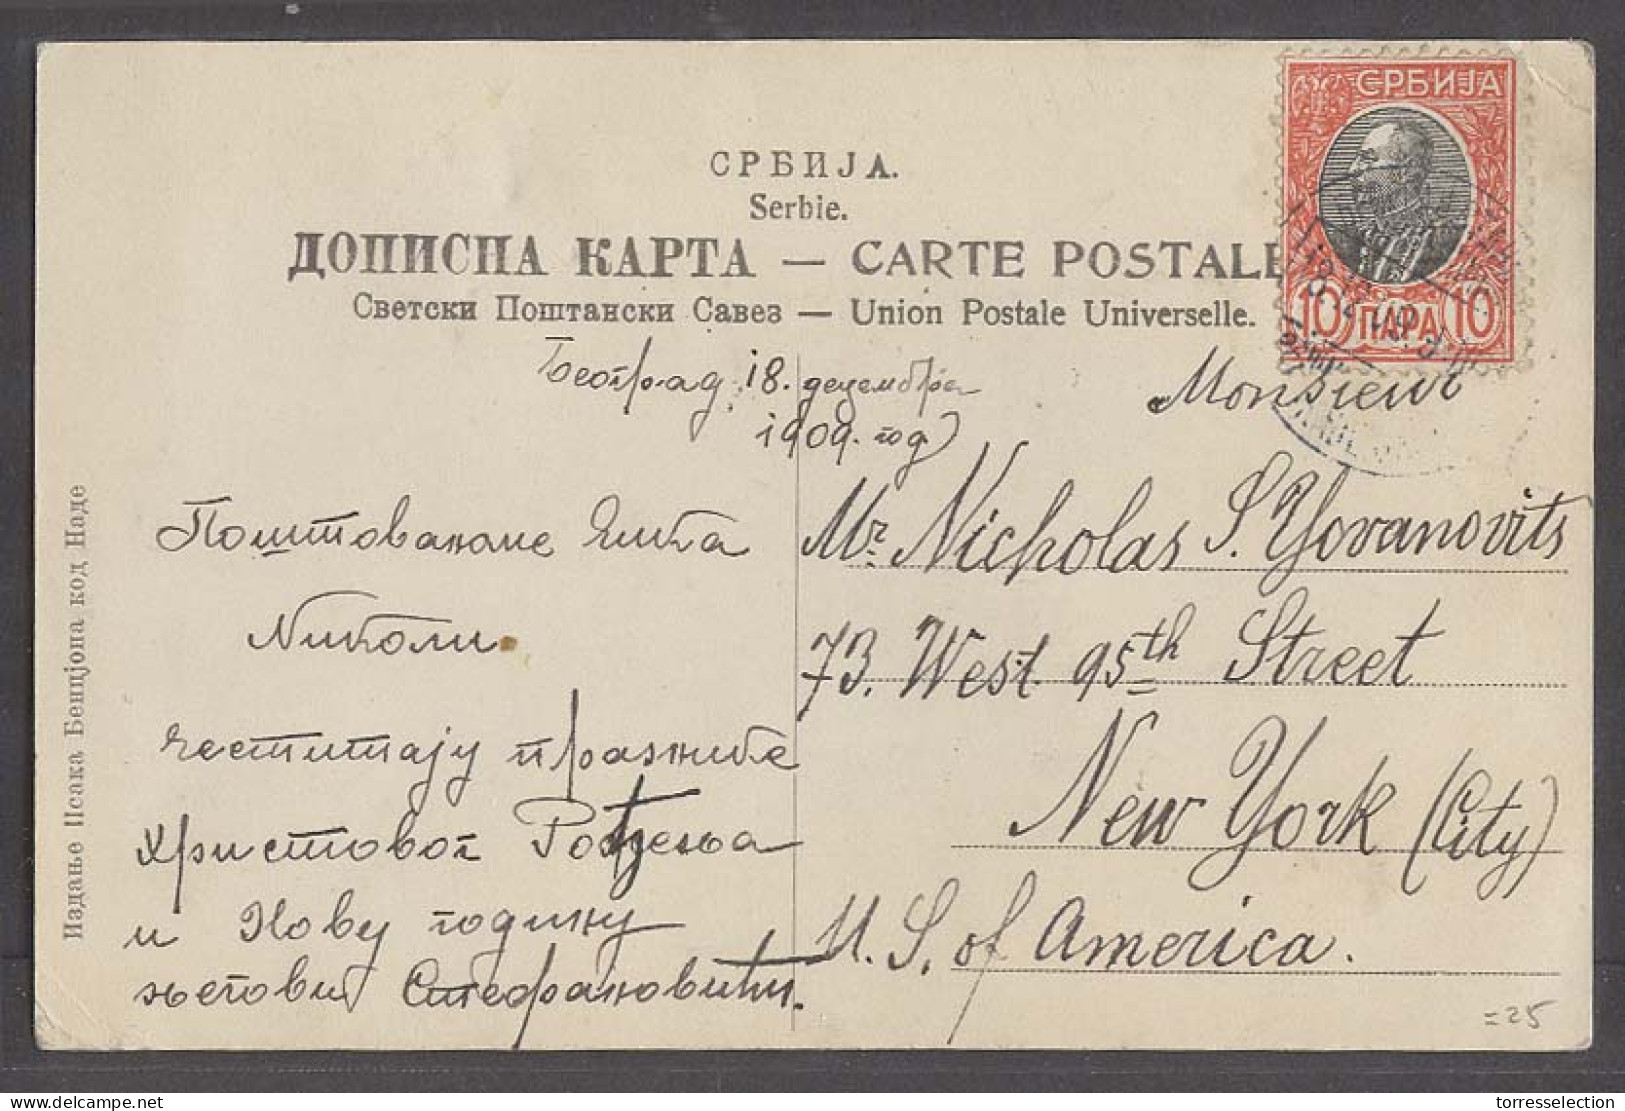 СРБИЈА
10 ПАРА 10
СРБИЈА.
Serbie.
ДОПИСНА КАРТА — CARTE POSTALE
Светски Поштански Савез — Union Postale Universelle.
Београд, 18. децембра
1909. год
Поштованоме
Николи
честитају празнике
Христовог Рођења
и Нову годину
његови Стефановићи.
Monsieur
Mr. Nicholas S. Yovanovits
73. West 95th Street
New York (City)
U. S. of America.
Издање Исака Бенцјона код Наде
=25
delcampe.net
torresselection